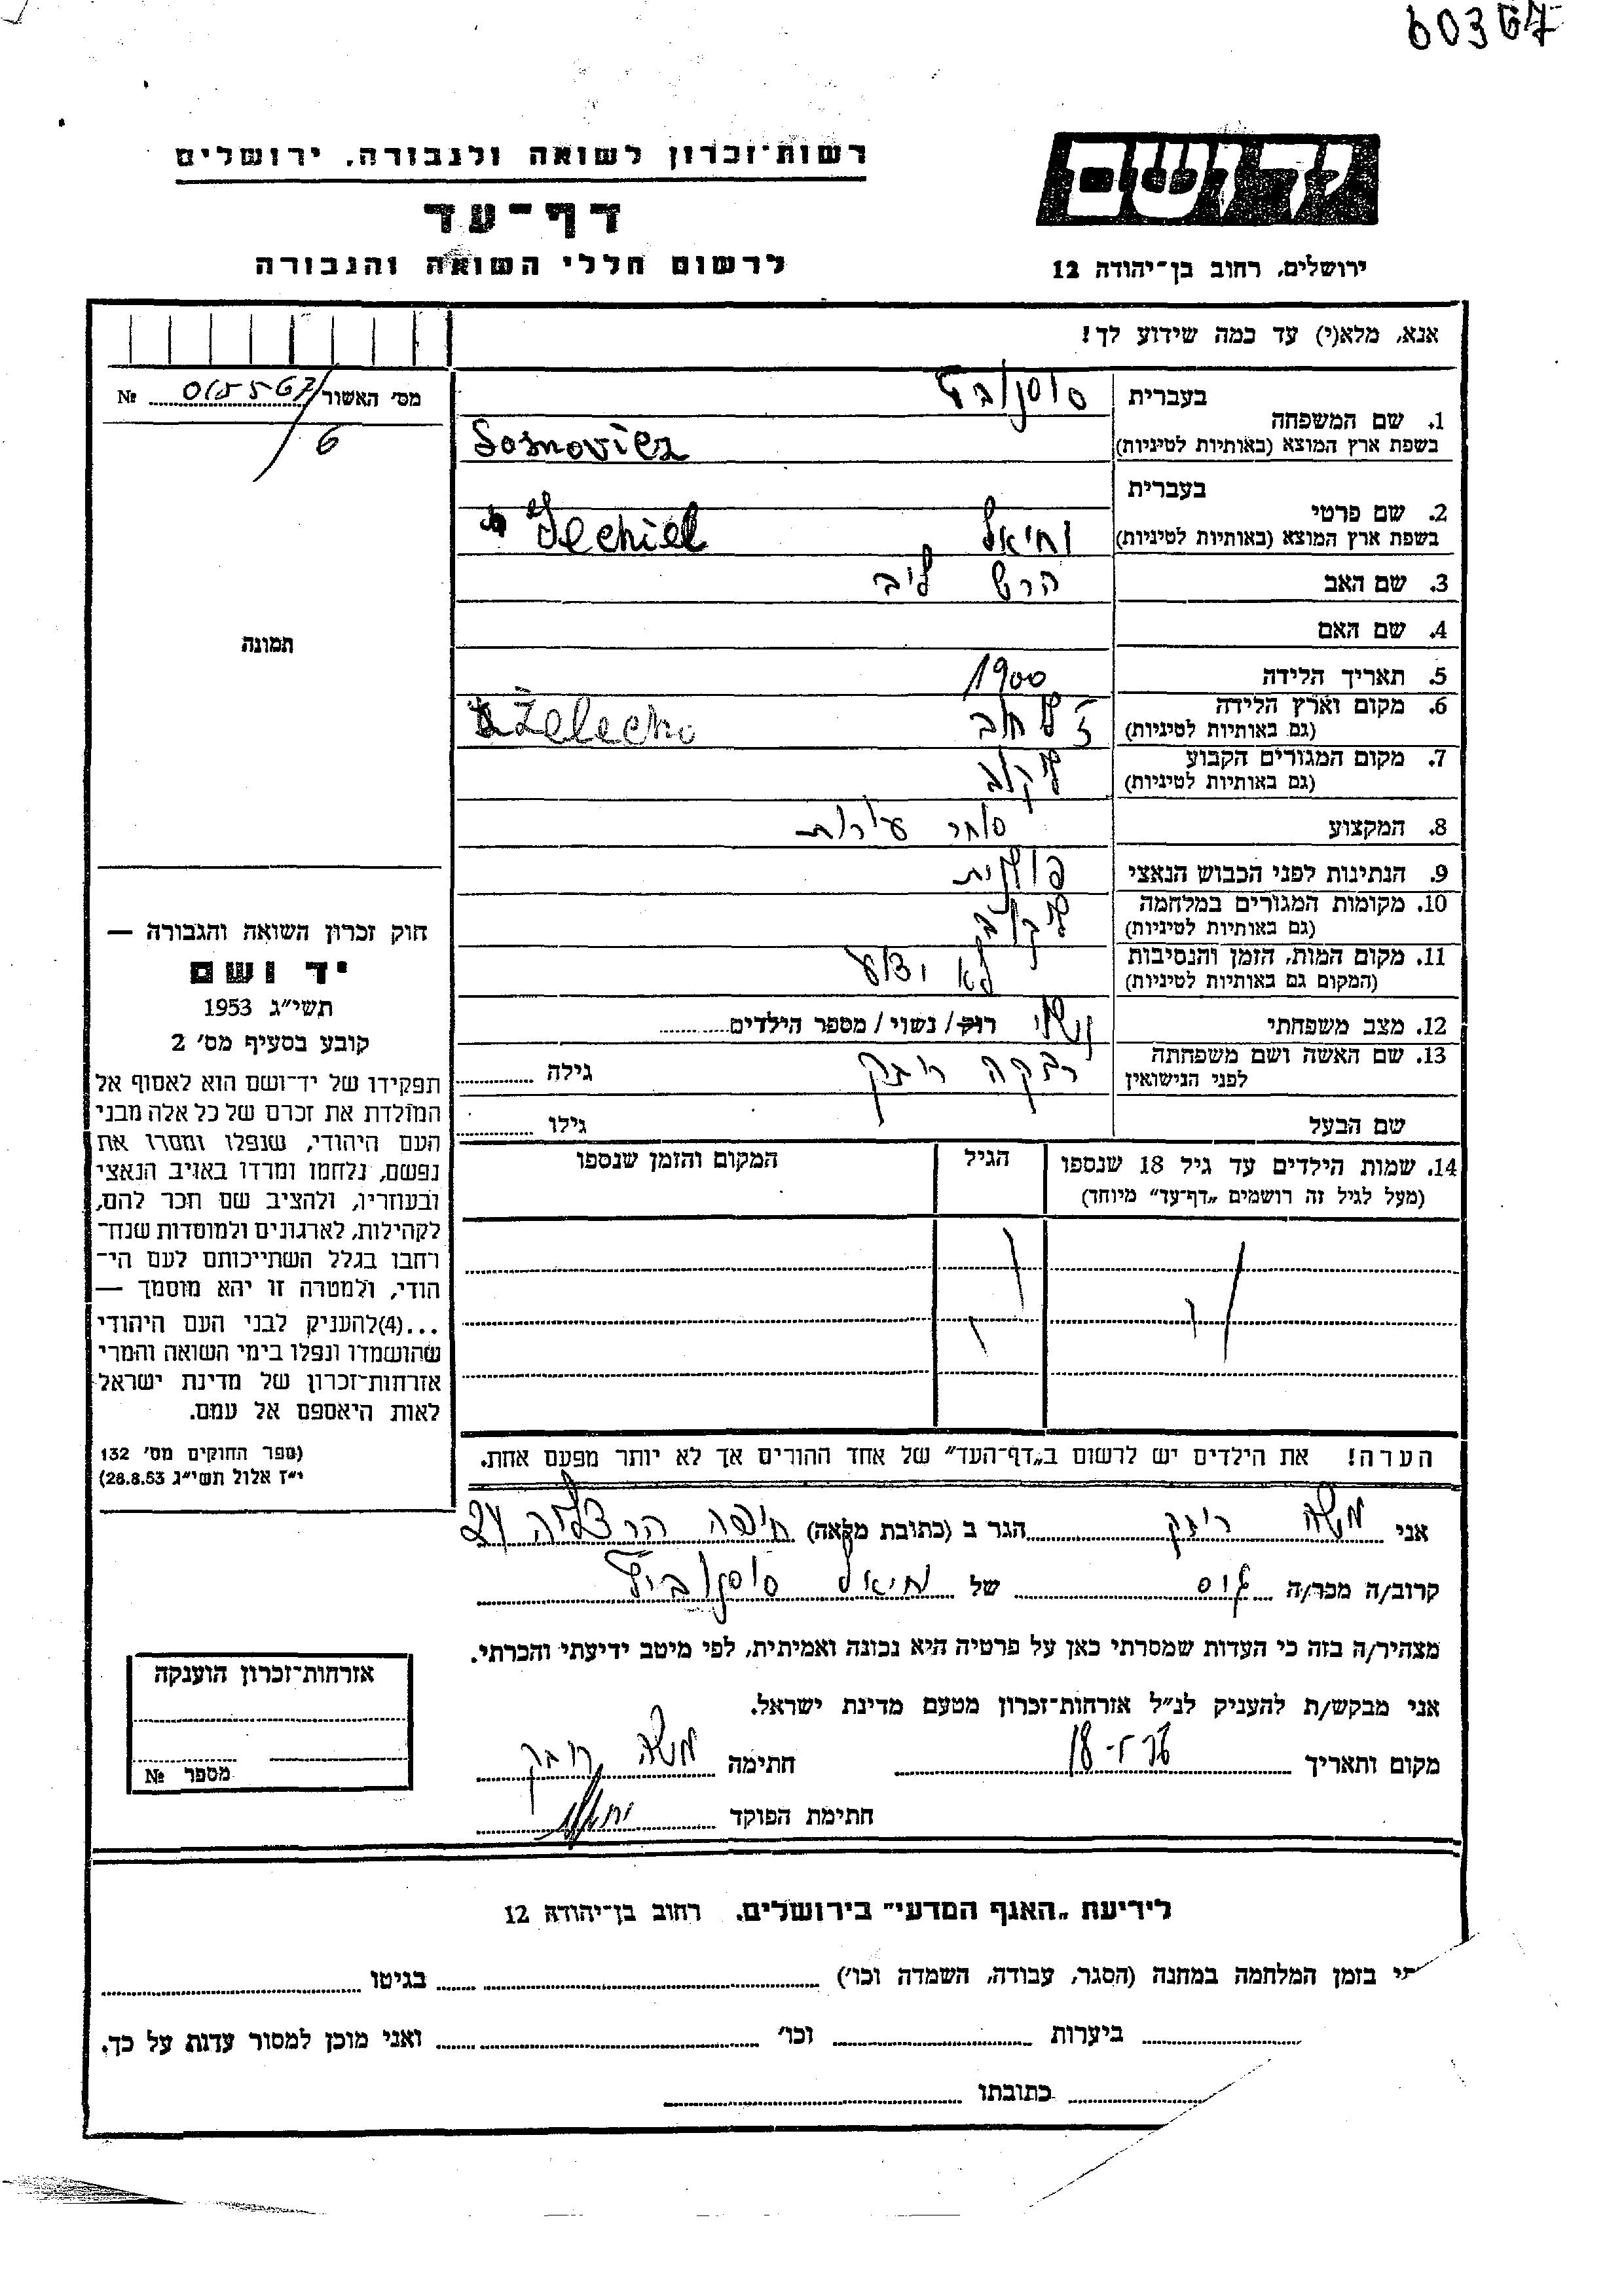 60367
ידושם
ירושלים, רחוב בן־יהודה 12
רשות־זכרון לשואה ולגבורה, ירושלים
דף־עד
לרשום חללי השואה והגבורה
אנא, מלא(י) עד כמה שידוע לך!
מס׳ האשור 015567 №
6
תמונה
חוק זכרון השואה והגבורה —
יד ושם
תשי״ג 1953
קובע בסעיף מס׳ 2
תפקידו של יד־ושם הוא לאסוף אל
המולדת את זכרם של כל אלה מבני
העם היהודי, שנפלו ומסרו את
נפשם, נלחמו ומרדו באויב הנאצי
ובעוזריו, ולהציב שם וזכר להם,
לקהילות, לארגונים ולמוסדות שנח־
רבו בגלל השתייכותם לעם הי־
הודי, ולמטרה זו יהא מוסמך —
...(4)להעניק לבני העם היהודי
שהושמדו ונפלו בימי השואה והמרי
אזרחות־זכרון של מדינת ישראל
לאות היאספם אל עמם.
(ספר החוקים מס׳ 132
י״ז אלול תשי״ג 28.8.53)
בעברית סוסנוביץ
1. שם המשפחה
בשפת ארץ המוצא (באותיות לטיניות) Sosnovicz
בעברית
2. שם פרטי
בשפת ארץ המוצא (באותיות לטיניות) יחיאל Jechiel
3. שם האב הרש ליב
4. שם האם
5. תאריך הלידה 1900
6. מקום וארץ הלידה
(גם באותיות לטיניות) ז'לחוב Żelecho
7. מקום המגורים הקבוע
(גם באותיות לטיניות)
8. המקצוע סוחר עורות
9. הנתינות לפני הכבוש הנאצי פולנית
10. מקומות המגורים במלחמה
(גם באותיות לטיניות)
11. מקום המות, הזמן והנסיבות
(המקום גם באותיות לטיניות) לא ידוע
12. מצב משפחתי נשוי רוק/ נשוי/ מספר הילדים
13. שם האשה ושם משפחתה
לפני הנישואין רבקה גילה
שם הבעל גילו
14. שמות הילדים עד גיל 18 שנספו
(מעל לגיל זה רושמים „דף־עד״ מיוחד)
הגיל
המקום והזמן שנספו
הערה! את הילדים יש לרשום ב„דף־העד״ של אחד ההורים אך לא יותר מפעם אחת.
אני משה הגר ב (כתובת מלאה) חיפה הרצליה 27
קרוב/ה מכר/ה גיס של יחיאל סוסנוביץ
מצהיר/ה בזה כי העדות שמסרתי כאן על פרטיה היא נכונה ואמיתית, לפי מיטב ידיעתי והכרתי.
אני מבקש/ת להעניק לנ״ל אזרחות־זכרון מטעם מדינת ישראל.
מקום ותאריך חתימה משה
חתימת הפוקד
אזרחות־זכרון הוענקה
מספר №
לידיעת „האגף המדעי״ בירושלים, רחוב בן־יהודה 12
תי בזמן המלחמה במחנה (הסגר, עבודה, השמדה וכו׳) בגיטו
ביערות וכו׳ ואני מוכן למסור עדות על כך.
כתובתו